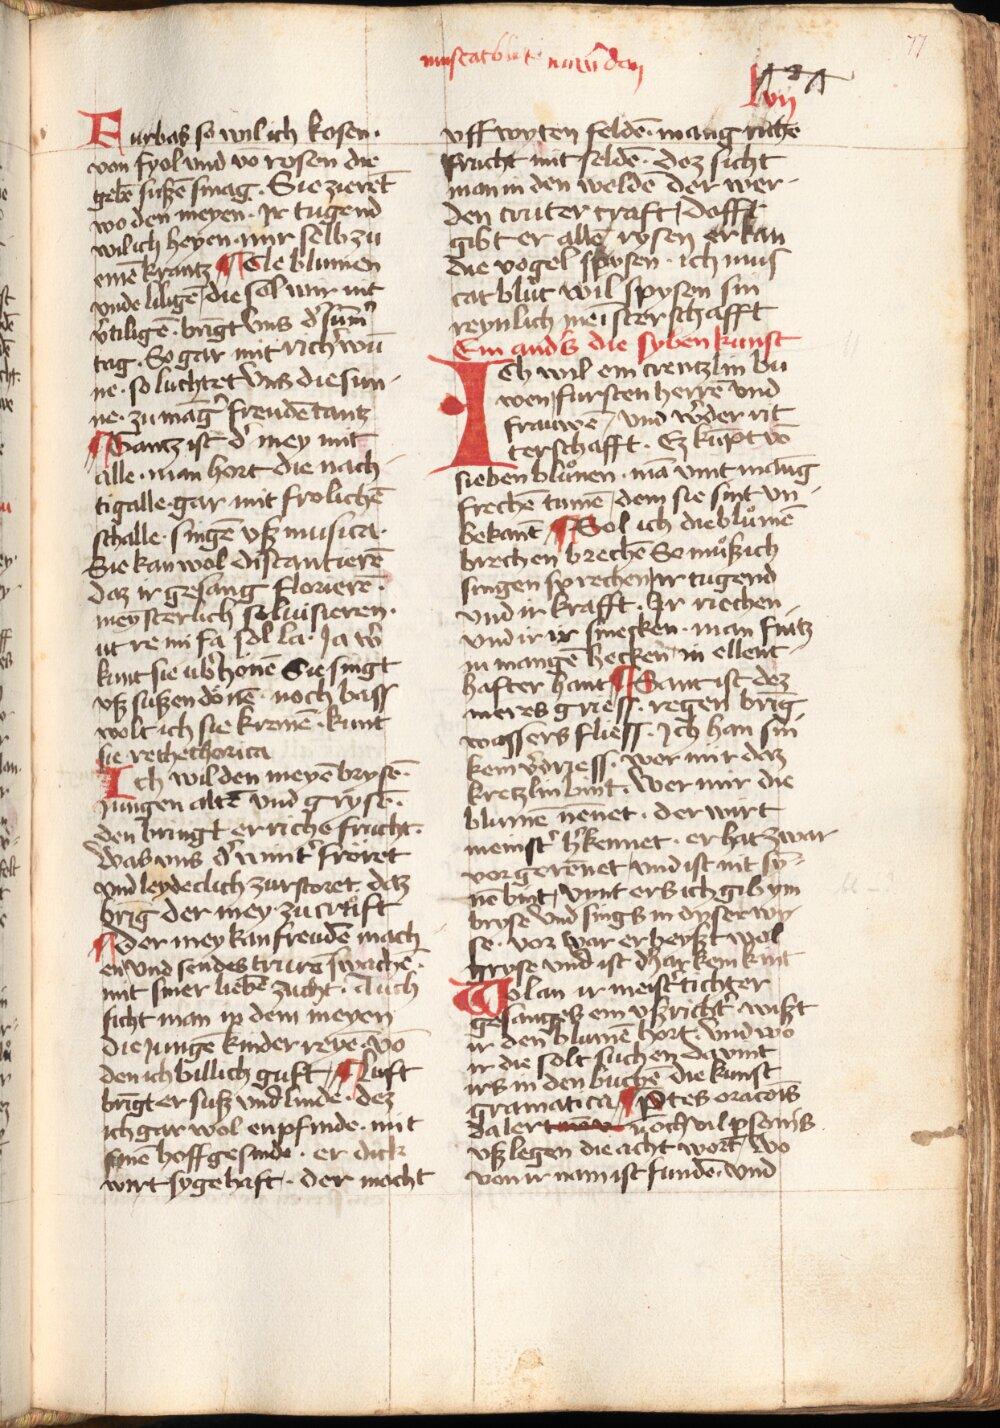 muscatblut nuw̄ den
77
lvij
Furbas so wil ich kosen ·
von fyol und vō rosen die
gebē sußē smag · Sie zieret̄
wo den meyen · Ir tugend
wil ich heyen · mir selb zu
einē krantz ¶ Cle blumen
unde liligē / die sol mir nit
v̓tiligē · bringt uns d̓ sum̄
tag · So gar mit rich̓ wū
ne · so luchtet uns die sun-
ne · zu mang̓ freudē tantz
¶ Gantz ist d̓ mey mit
alle · man hort die nach-
tigalle · gar mit frolichē
schalle · singē uß musica ·
Sie kan wol discantierē
daz ir gesang florierē ·
meysterlich soluisieren ·
ut re mi fa sol la · Ja w̓
kunt sie ub̓ honē Sie singt
uß sußen dönē · noch bass
wolt ich sie kronē · kunt
sie rethethorica
Ich wil den meyē brysē ·
Jungen altē und grysē ·
den bringt er riche frucht ·
Was uns d̓ wint̓ fröret
und leydeclich zurstoret · daz
brīg der mey zu crafft
¶ Der mey kan freudē mach
en und sendes trurē swachē ·
mit siner liebē zucht · Auch
sicht man in dem meyen
die jungē kinder reyē · vō
den ich billich guft / ¶ Luft
brīgt er suß und linde · dez
ich gar wol enpfinde · mit
sinē hoffgesinde · er dick
wirt sygehaft · der macht
uff wyten feldē · mang riche
frucht mit seldē · dez sicht
man in den weldē der wer-
den cruter craft / dafft
gibt er allē rysen er kan
die vogel spysen · ich mus
catblut wil spysen sin
reynlich meisterschafft
Ein ands die syben kunst
Ich wil ein crentzlin bu
wen / fursten herrē und
frauwē / und w̓der rit
terschafft · Ez kūpt vō
sieben blumen · mā vint māng
frechē tumē / dem sie sint un-
bekant ¶ Sol ich die blumē
brechen brechē So muß ich
singen sprechen / ir tugend
und ir krafft · Ir riechen
und ir ir smecken · man fintz
in mangē hecken / in ellent-
hafter hant ¶ Sant ist dez
meres griess · regen brīg
wassers fliess · Ich han sin
kem v̓driess · wer mir daz
kretzlin bint · Wer mir die
blumē nēnet · der wirt
meinst̓ h̓kennet · er hat zwar
vor gerēnet und ist nit sȳ-
nē blint / vint ers ich gib ym
bryse und sings in dyser wy
se · vor war er heyßt wol
wyse und ist dhar kem kint
Wolan ir meist̓ tichter
gesanges ein ußricht̓ · wißt
ir den blumē hort · und wo
ir die solt suchen da vint
irs in den buchē die kunst
gramatica / ¶ P̄tes orac̄ois
da lert noch vil pson̄s
uß legen die acht wort · Wo
von ir nam ist fundē · und